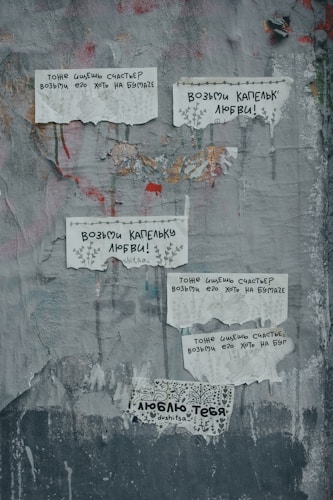 тоже ищешь счастье?
возьми его хоть на бумаге
возьми капельк
любви!
возьми капельку
любви!
dushitsa_
тоже ищешь счастье?
возьми его хоть на бумаге
тоже ищешь счастье
возьми его хоть на бум
люблю тебя
dushitsa_